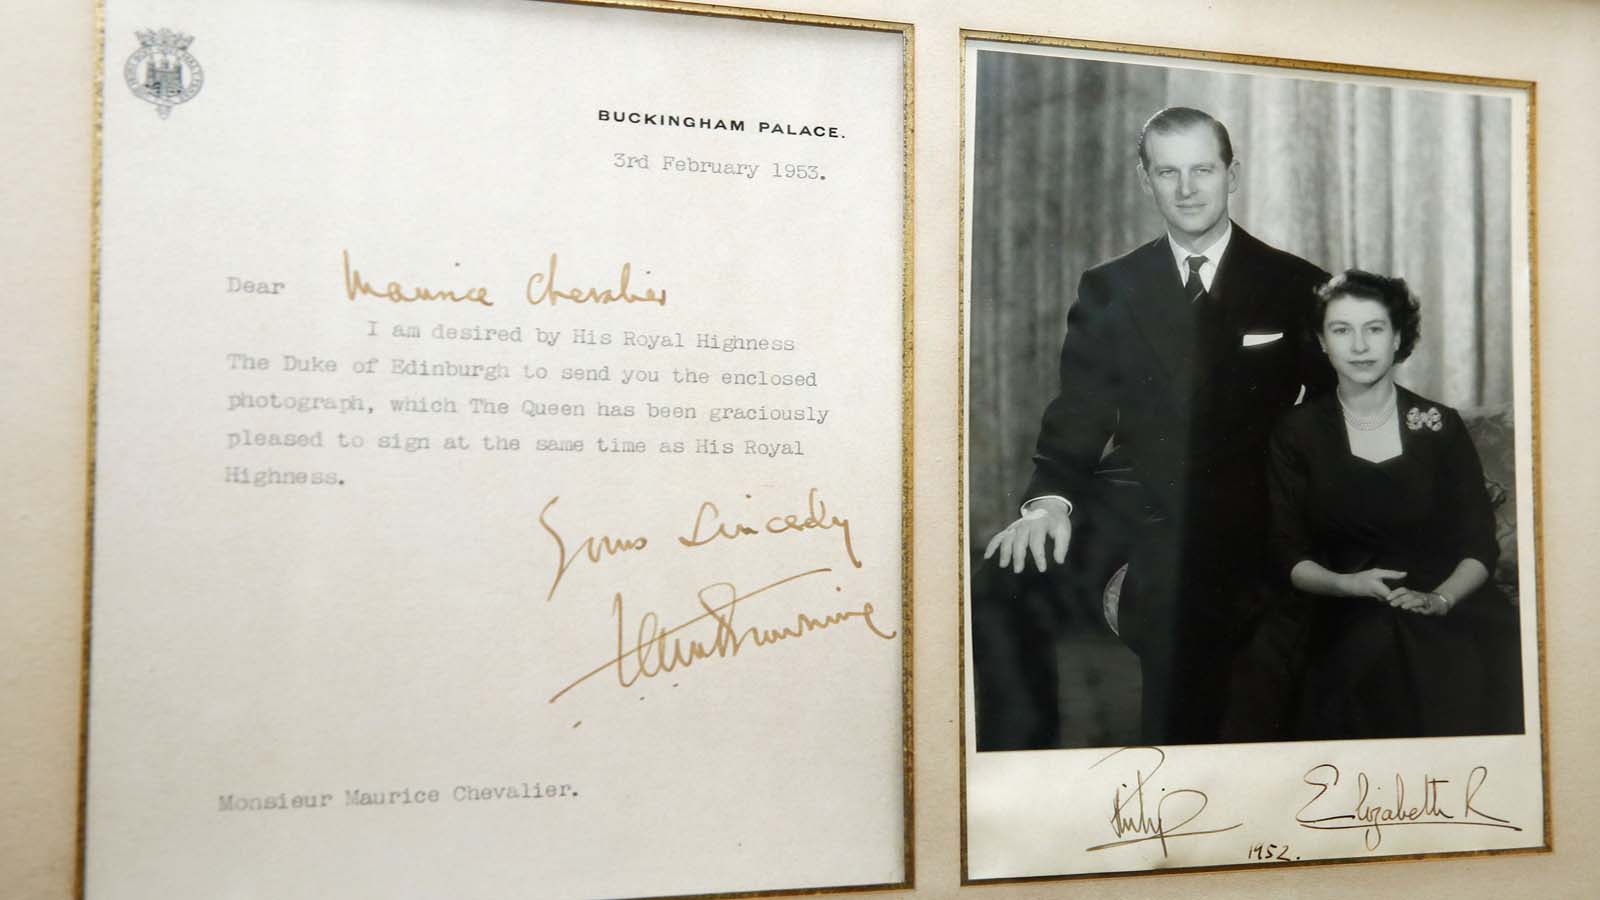 BUCKINGHAM PALACE.
3rd February 1953.
Dear Maurice Chevalier
I am desired by His Royal Highness
The Duke of Edinburgh to send you the enclosed
photograph, which The Queen has been graciously
pleased to sign at the same time as His Royal
Highness.
Yours Sincerely
Monsieur Maurice Chevalier.
Philip
Elizabeth R
1952.